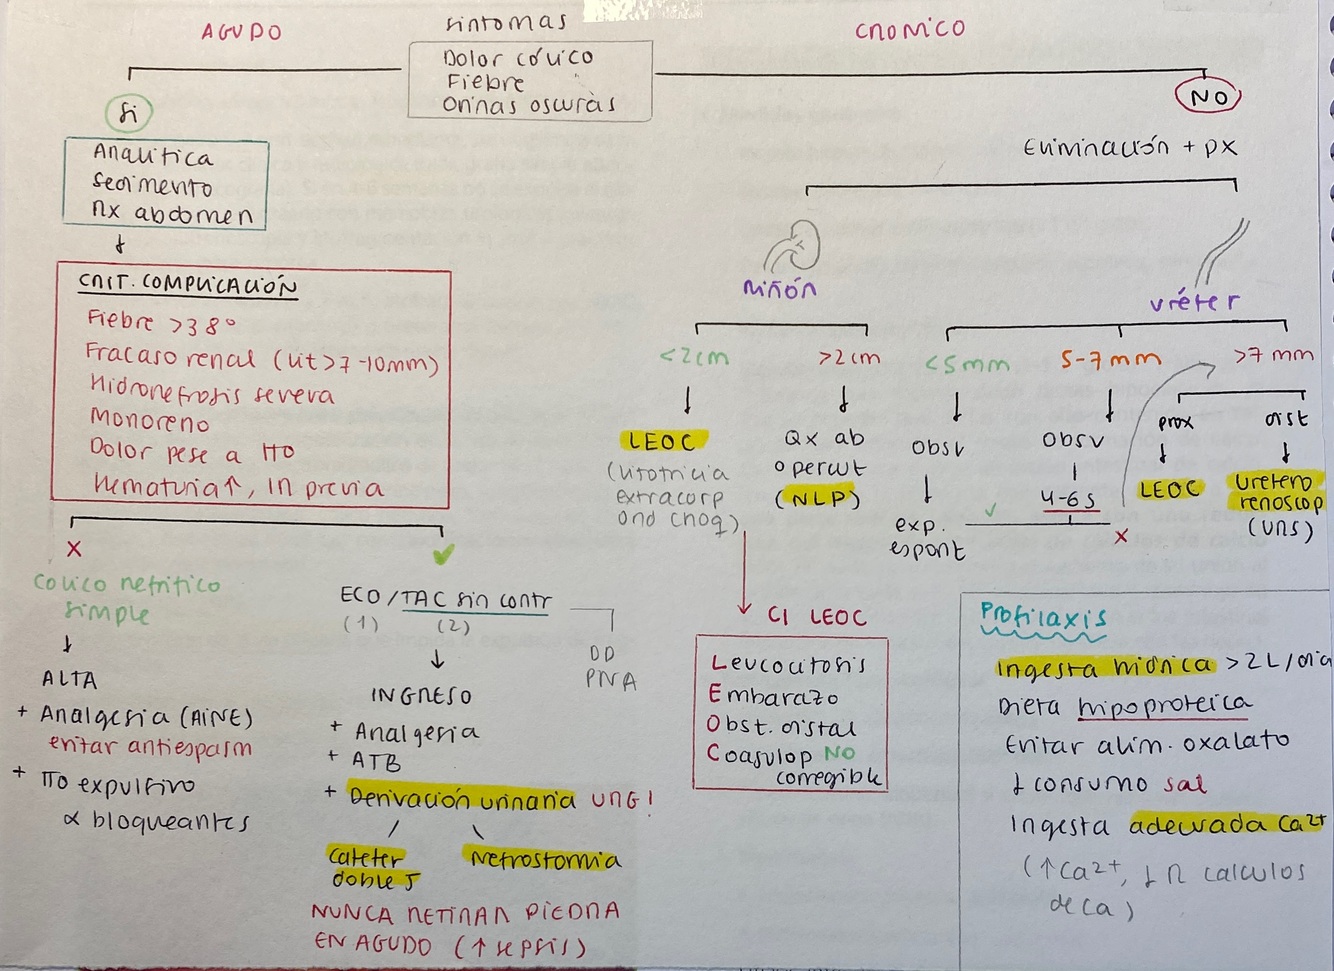 AGUDO
síntomas
CRÓNICO
Dolor cólico
Fiebre
Orinas oscuras
Sí
NO
Analítica
Sedimento
Rx abdomen
Eliminación + px
CRIT. COMPLICACIÓN
Fiebre >38º
Fracaso renal (lit >7-10mm)
Hidronefrosis severa
Monoreno
Dolor pese a tto
Hematuria↑, IR previa
Riñón
uréter
<2cm
>2cm
<5mm
5-7mm
>7mm
LEOC
(Litotricia
extracorp
ond choq)
Qx ab
o percut
(NLP)
Obsv
exp.
espont
✓
Obsv
4-6s
x
prox
LEOC
dist
Uretero
renoscop
(URS)
x
✓
Cólico nefrítico
simple
ALTA
+ Analgesia (AINE)
evitar antiespasm
+ Tto expulsivo
α bloqueantes
ECO / TAC sin contr
(1) (2)
DD
PNA
INGRESO
+ Analgesia
+ ATB
+ Derivación urinaria URG!
Catéter
doble J
Nefrostomía
NUNCA RETIRAR PIEDRA
EN AGUDO (↑ sepsis)
CI LEOC
Leucocitosis
Embarazo
Obst. distal
Coagulop NO
corregible
Profilaxis
Ingesta hídrica >2L/día
Dieta hipoproteica
Evitar alim. oxalato
↓ consumo sal
Ingesta adecuada Ca2+
(↑Ca2+, ↓R cálculos
de Ca)